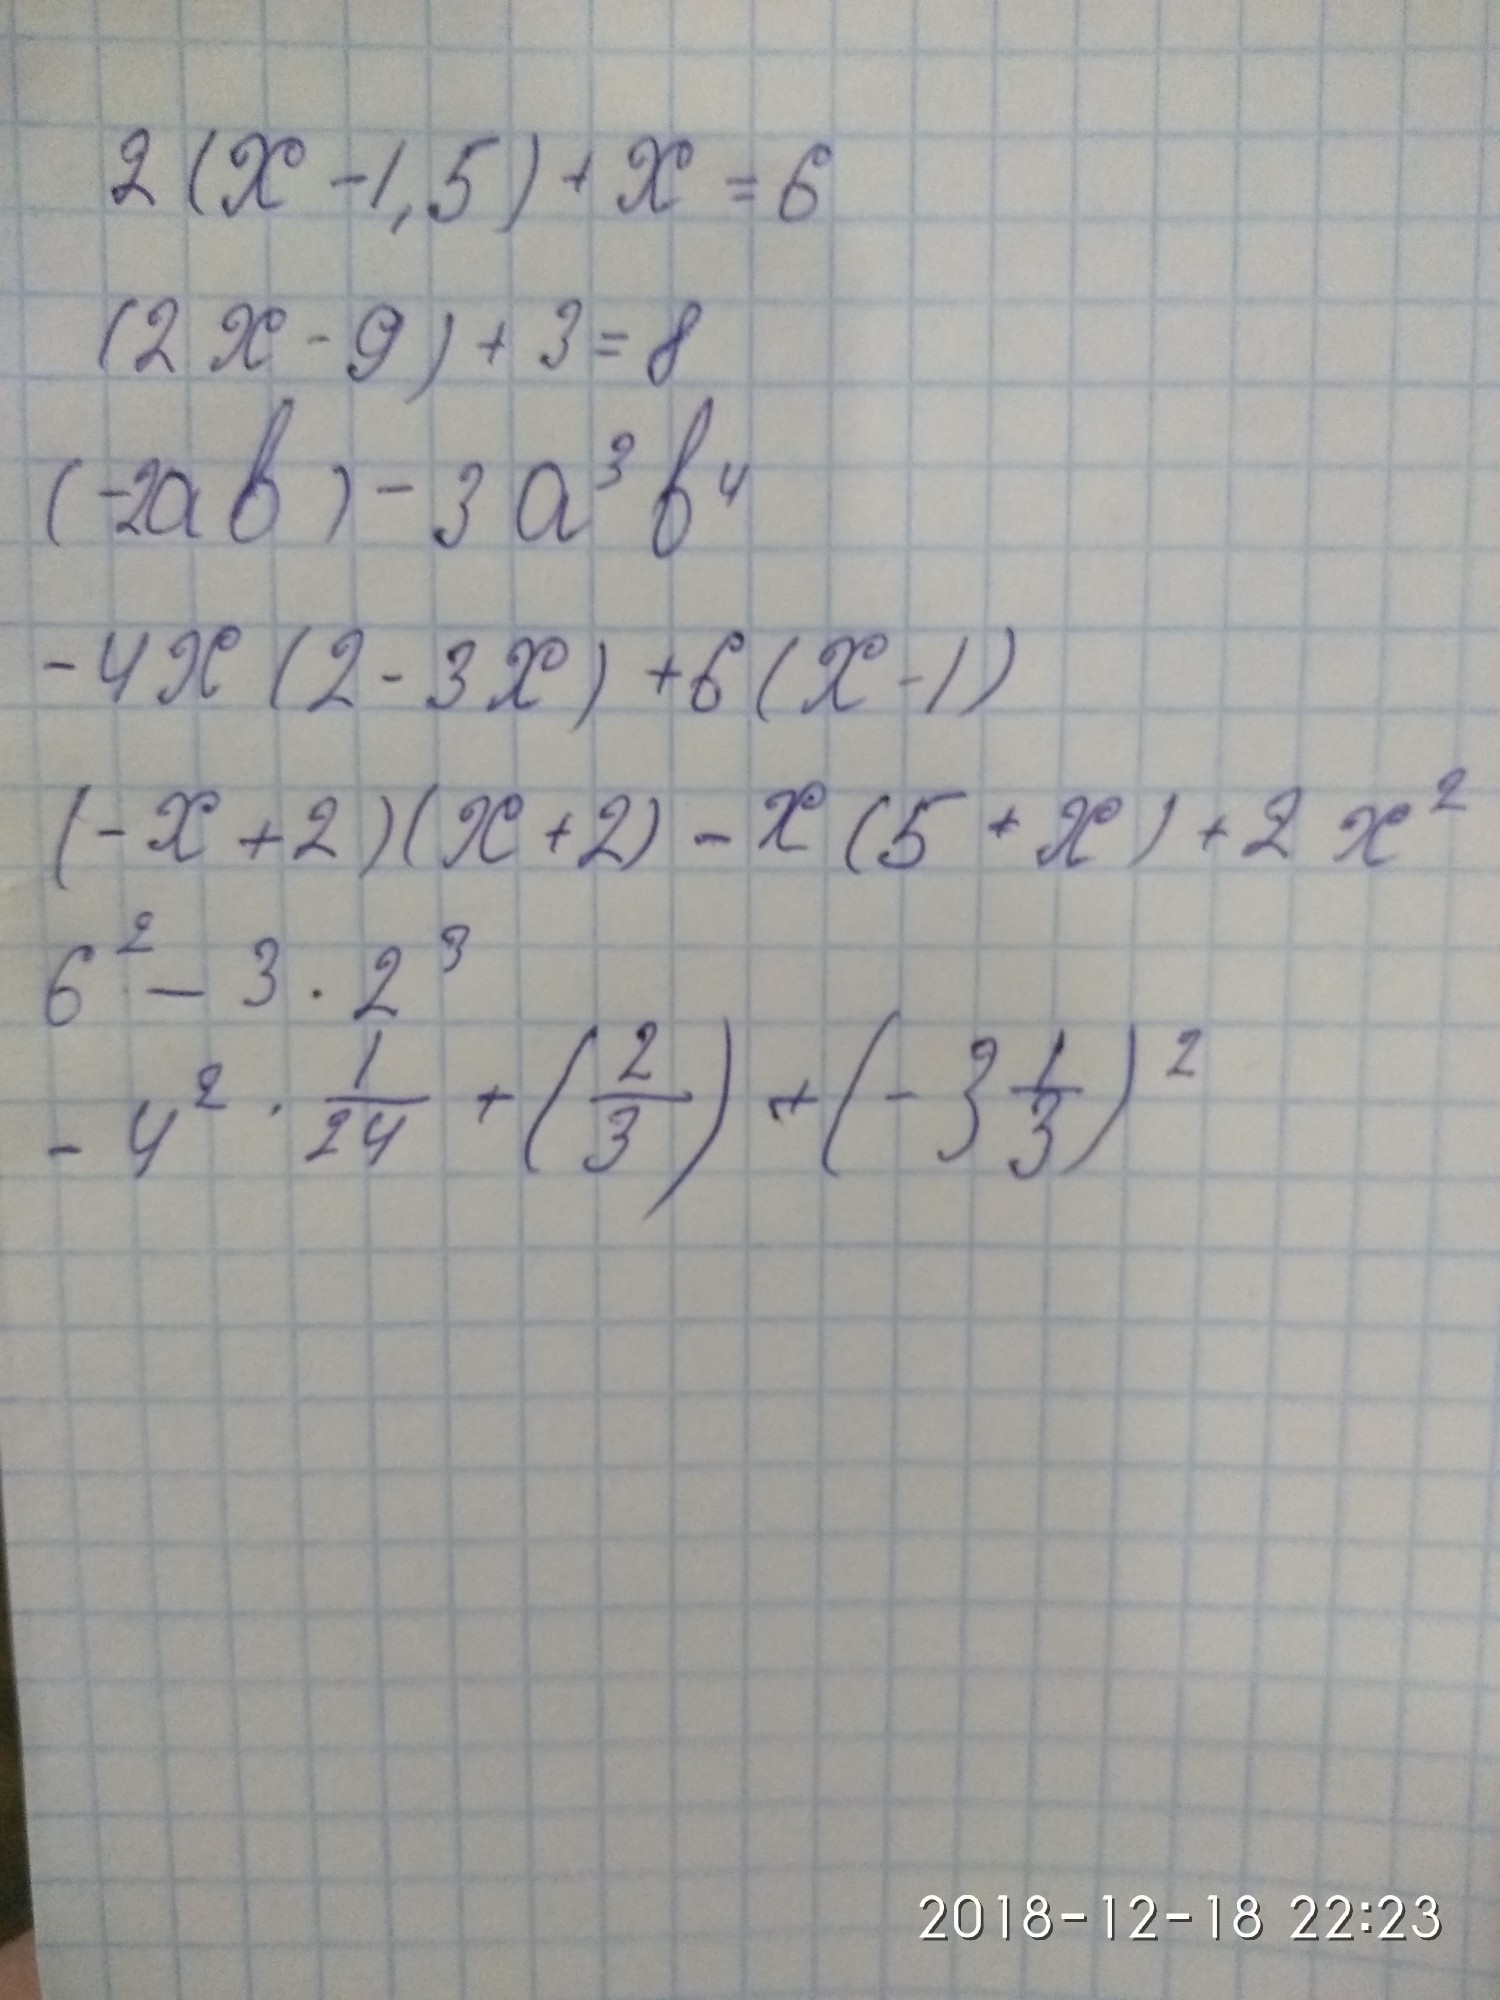 2(x-1,5)+x=6
(2x-9)+3=8
(-2ab)-3a³b⁴
-4x(2-3x)+6(x-1)
(-x+2)(x+2)-x(5+x)+2x²
6²-3·2³
-4²·1/24+(2/3)+(-3 1/3)²
2018-12-18 22:23